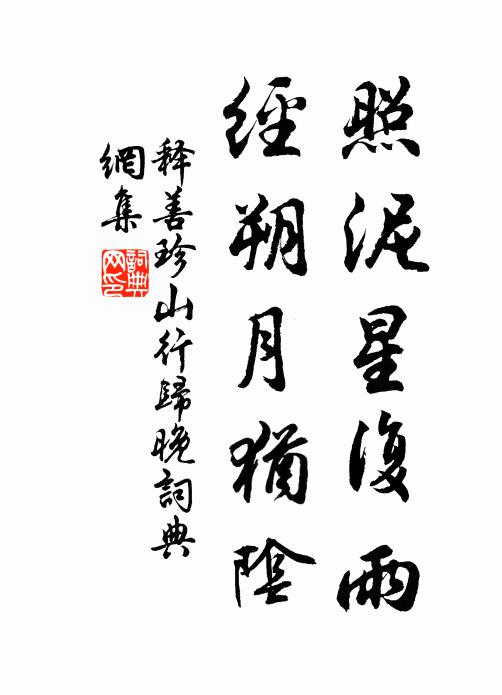 照泥星復雨
經朔月猶陰
释善珍山行歸晚詞典
網集
詞典
网印